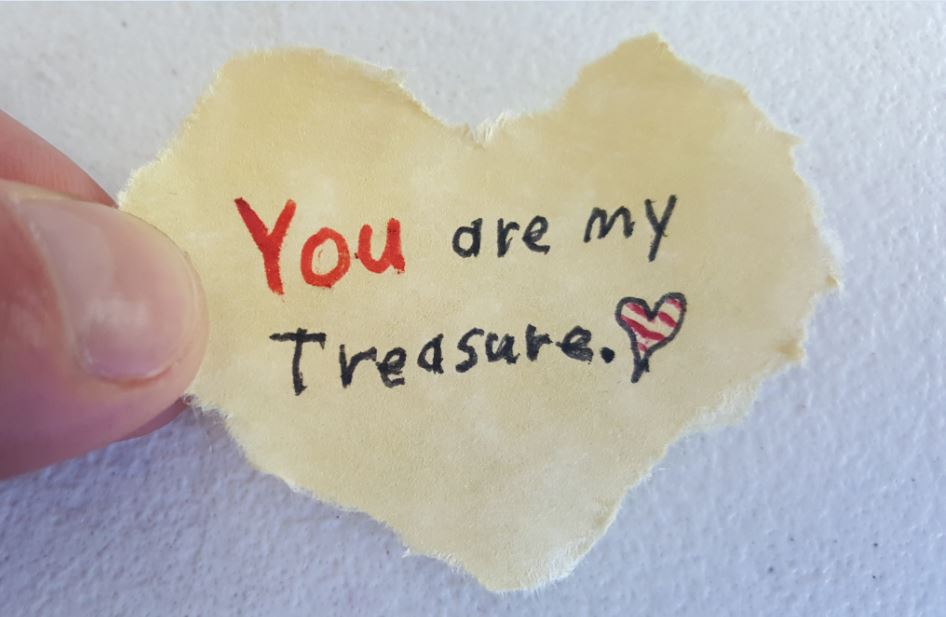 You are my
Treasure.